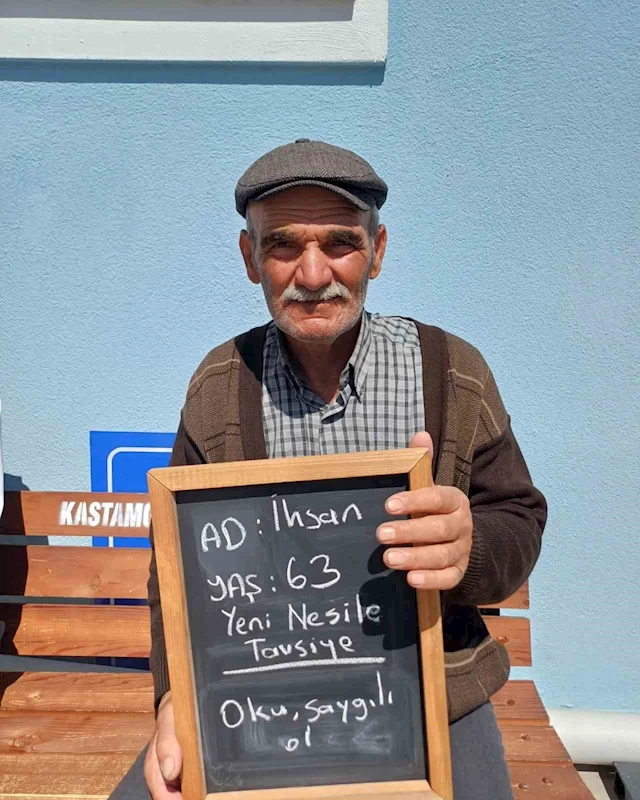 KASTAMO
AD: İhsan
YAŞ: 63
Yeni Nesile
Tavsiye
Oku, saygılı
ol